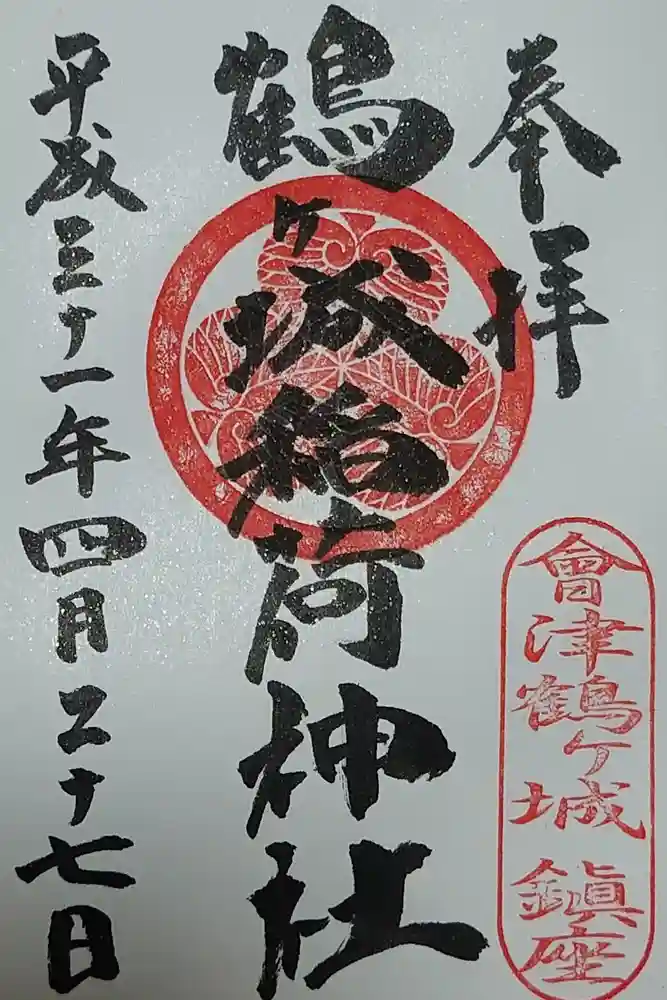 奉拝
鶴ケ城稲荷神社
平成三十一年四月二十七日
會津鶴ケ城鎮座